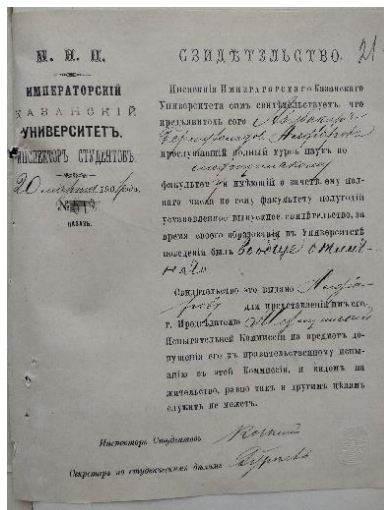 М. Н. П.
ИМПЕРАТОРСКІЙ
КАЗАНСКІЙ
УНИВЕРСИТЕТЪ.
ИНСПЕКТОРЪ СТУДЕНТОВЪ.
20
КАЗАНЬ.
21
СВИДѢТЕЛЬСТВО.
Инспекція Императорскаго Казанскаго
Университета симъ свидѣтельствуетъ, что
предъявитель сего
прослушавшій полный курсъ наукъ по
медицинскому
факультету и имѣющій в зачетѣ ему пол-
наго числа по сему факультету полугодій
установленное выпускное свидѣтельство, за
время своего образованія въ Университетѣ
поведенія былъ вообще отлич-
наго
Свидѣтельство это выдано
для представленія имъ его
г. Предсѣдателю Медицинской
Испытательной Коммиссіи на предметъ до-
пущенія его къ правительственному испы-
танію въ этой Коммиссіи, и видомъ на
жительство, равно такъ и другимъ цѣлямъ
служить не можетъ.
Инспекторъ Студентовъ
Секретарь по студенческимъ дѣламъ